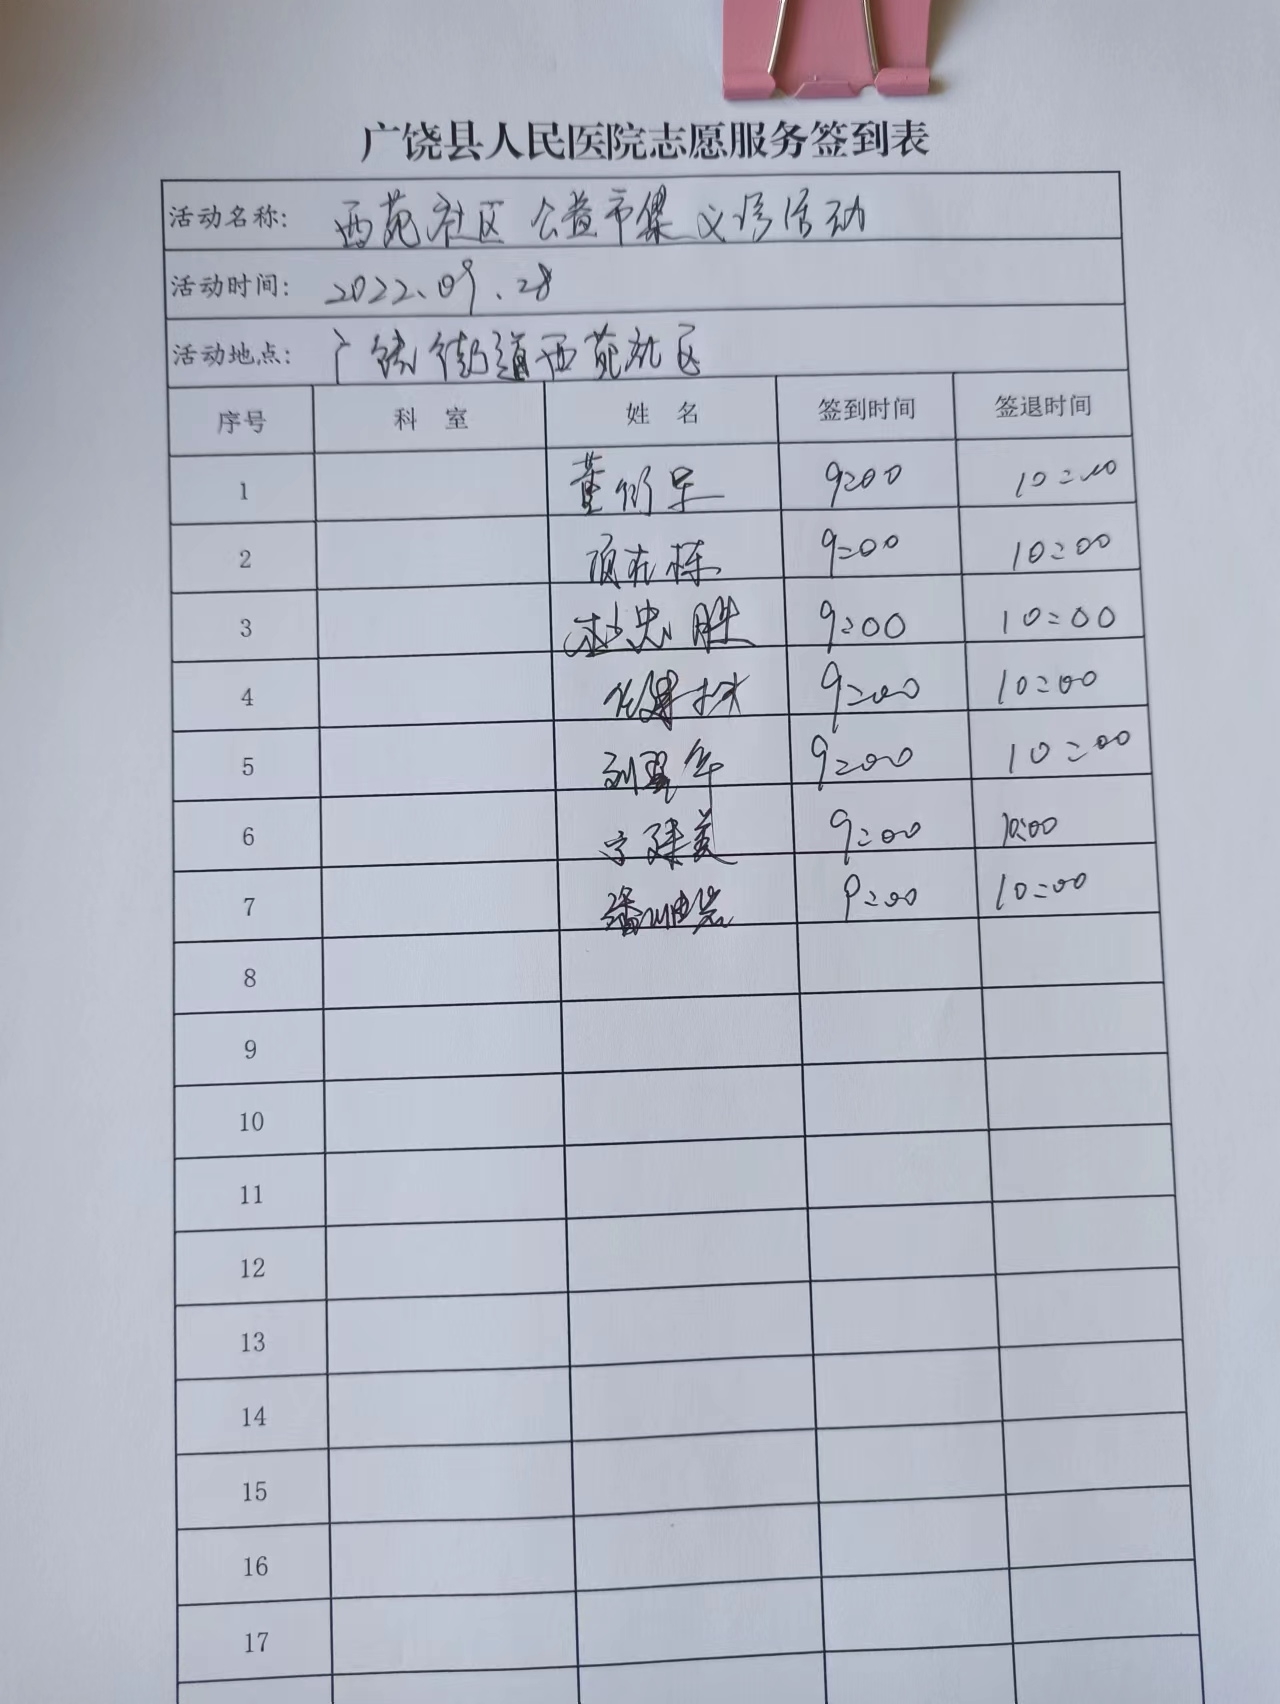 广饶县人民医院志愿服务签到表
活动名称: 西苑社区公益市集义诊活动
活动时间: 2022.09.28
活动地点: 广饶街道西苑社区
序号 科室 姓名 签到时间 签退时间
1 董 9:00 10:00
2 项在栋 9:00 10:00
3 赵忠胜 9:00 10:00
4 任建林 9:00 10:00
5 刘 9:00 10:00
6 9:00 10:00
7 潘 9:00 10:00
8
9
10
11
12
13
14
15
16
17